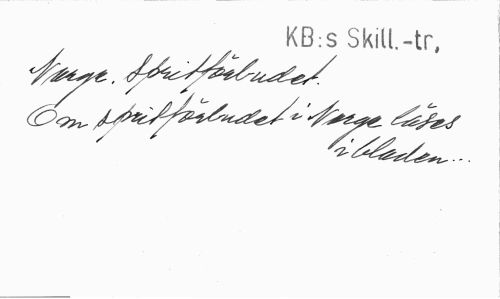 KB:s Skill.-tr.
Norge. Spritförbudet.
Om spritförbudet i Norge läses
i bladen...